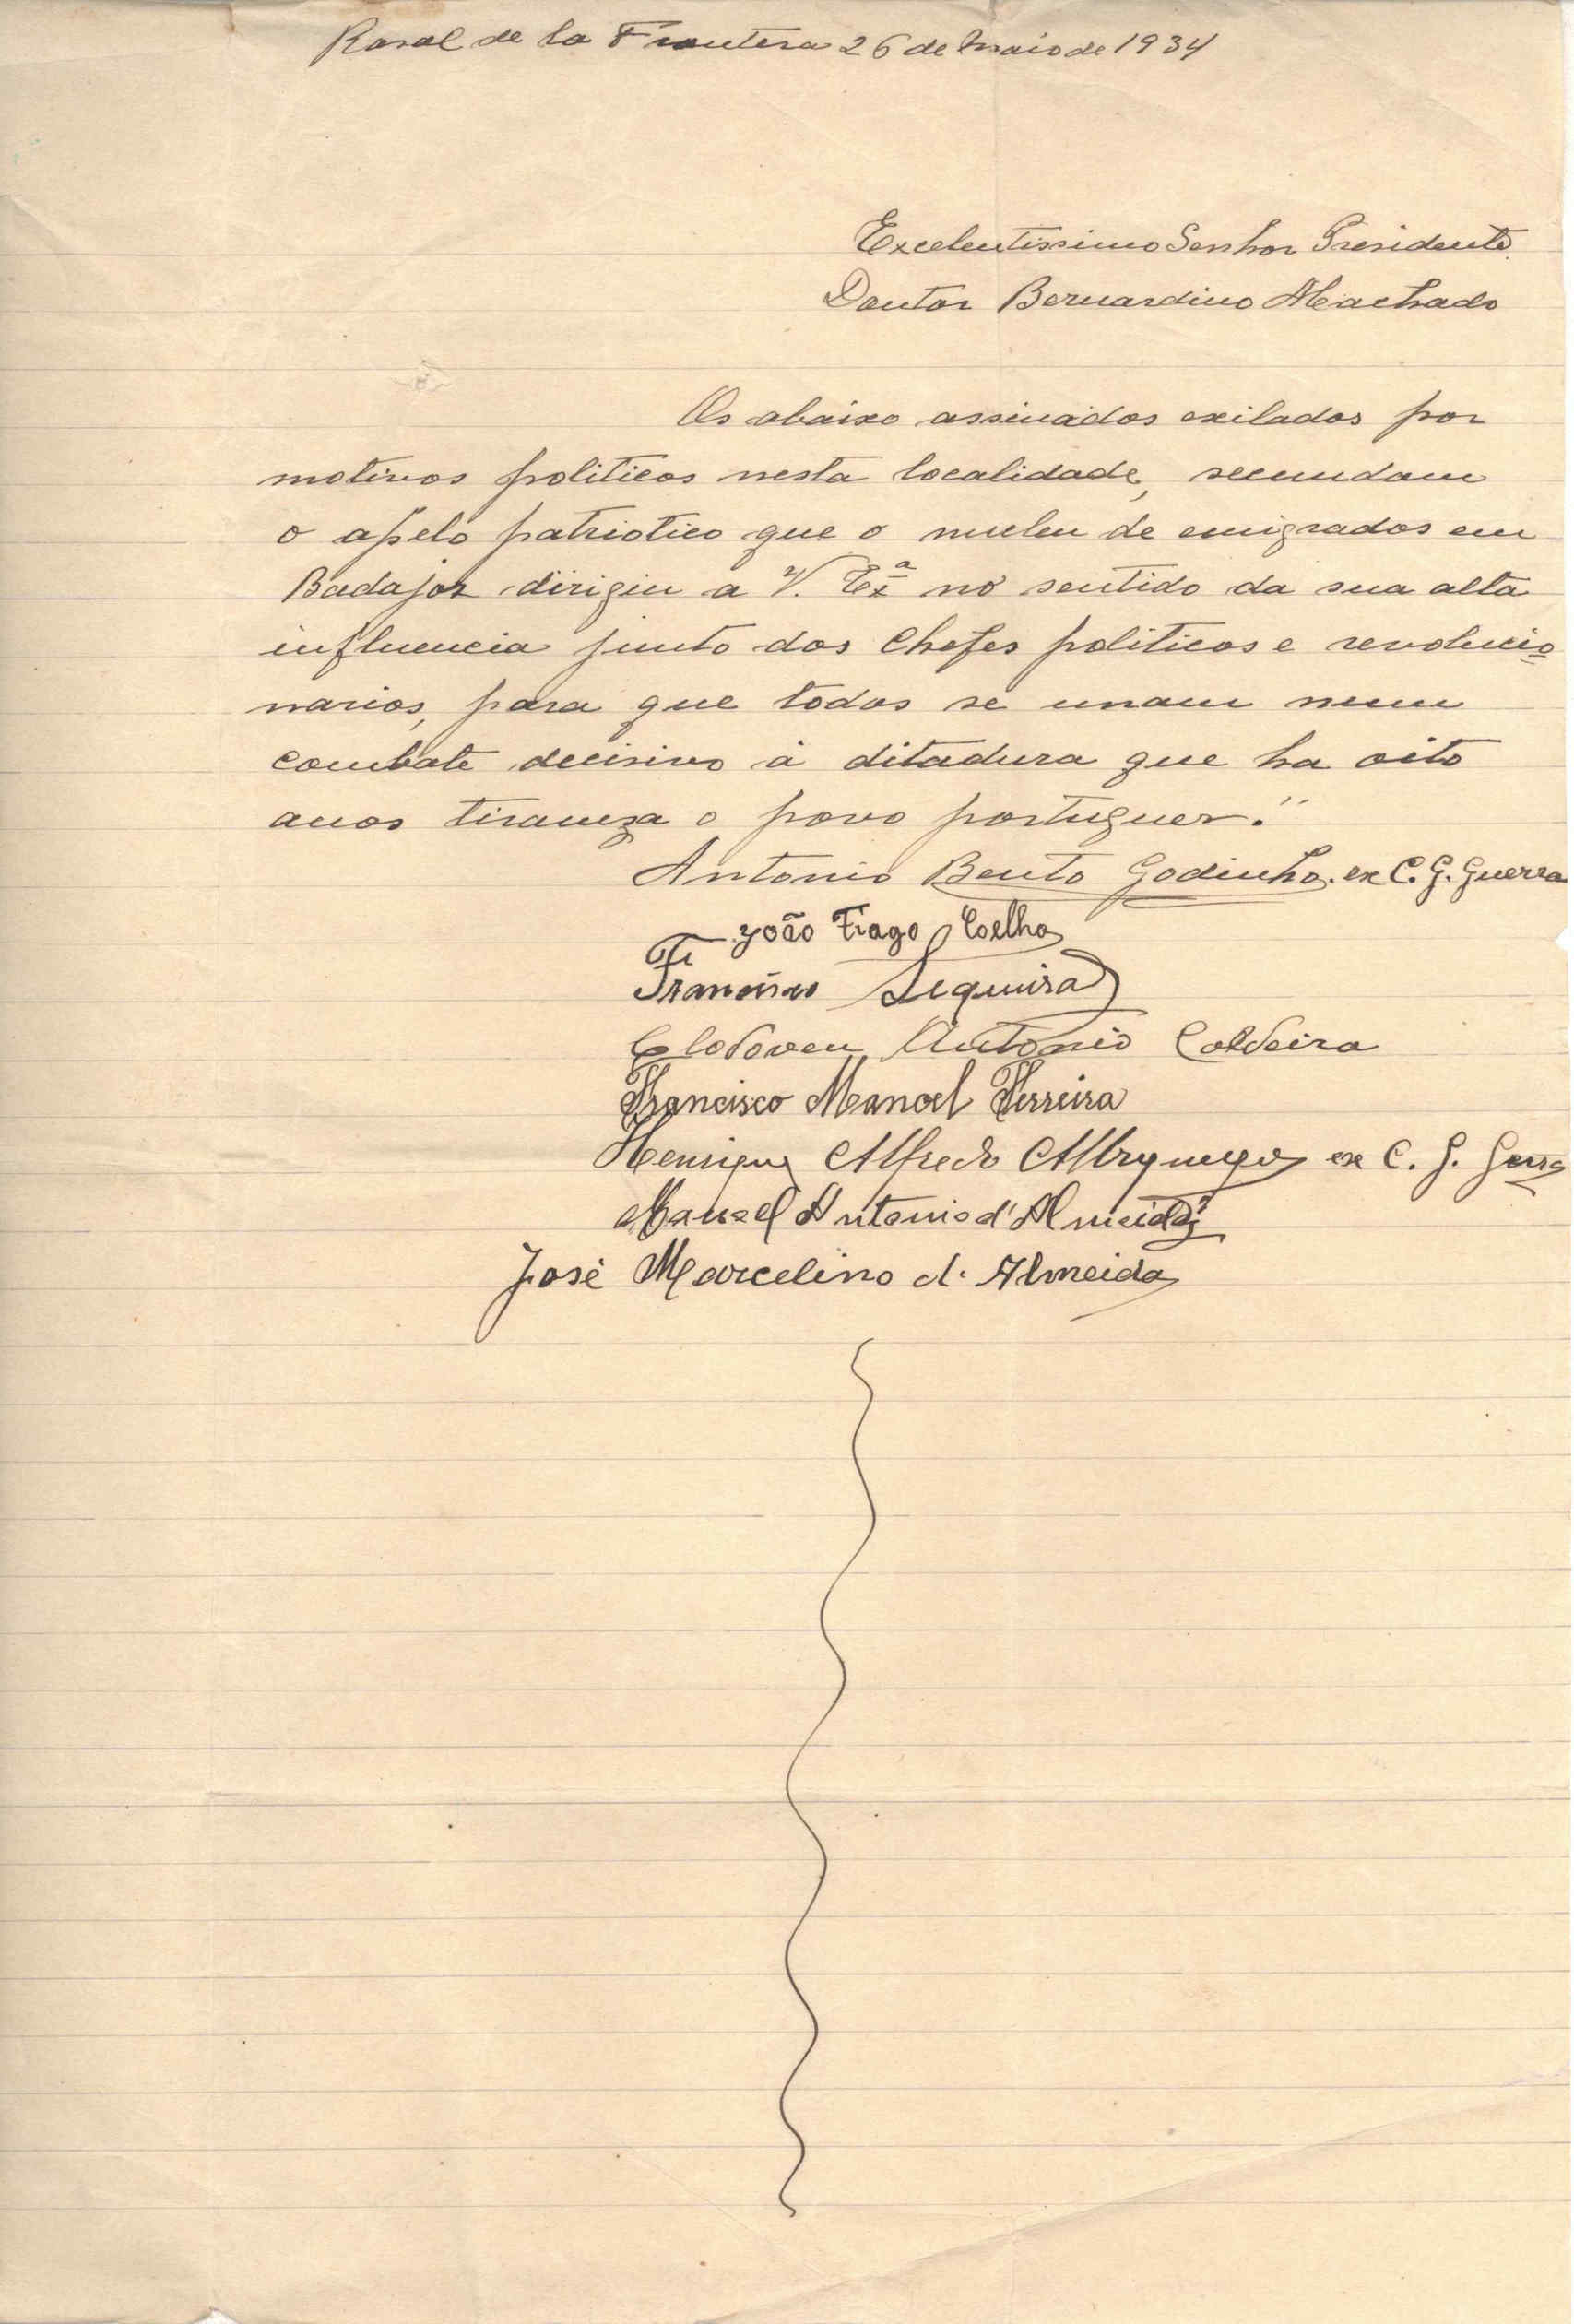 Rosal de la Frontera 26 de Maio de 1934
Excelentissimo Senhor Presidente
Doutor Bernardino Machado
Os abaixo assinados exilados por
motivos politicos nesta localidade, secundam
o apelo patriotico que o nucleu de emigrados em
Badajoz dirigiu a V. Exª no sentido da sua alta
influencia junto dos Chefes politicos e revolucio
narios, para que todos se unam num
combate decisivo á ditadura que ha oito
anos tiraniza o povo portuguez."
Antonio Bento Godinho. ex C. G. Guerra
João Tiago Coelho
Francisco Sequeira
Clodoveu Antonio Caldeira
Francisco Manoel Ferreira
Henrique Alfredo ex C. G. Guerra
Manoel Antonio d'Almeida
José Marcelino d'Almeida